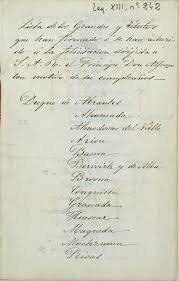 Leg. XIII, nº 242
Lista de los Grandes y Titulos
que han firmado ó se han adherido
á la felicitacion dirigida á
S. A. R. el Principe Don Alfonso
con motivo de su cumpleaños.
Duque de Abrantes
Ahumada
Almodovar del Valle
Arion
Baena
Berwick y de Alba
Bivona
Conquista
Granada
Huescar
Maqueda
Moctezuma
Rivas